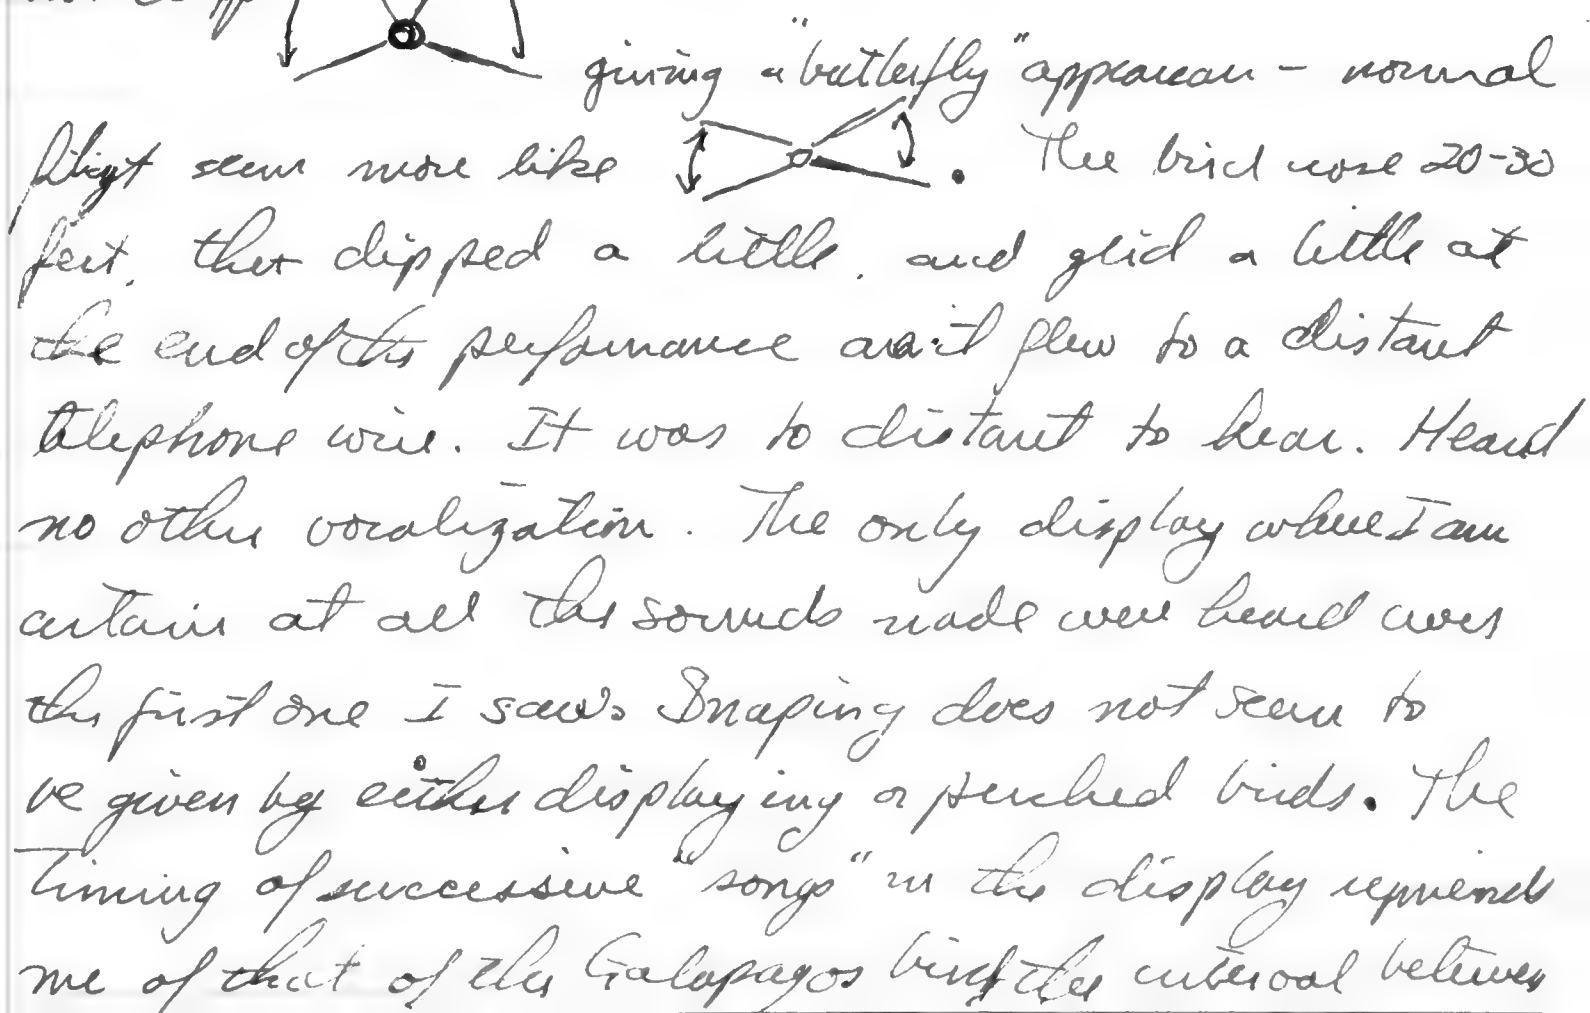 giving a "butterfly" appearean - normal
flight seem more like . The bird rose 20-30
feet, then dipped a little, and glid a little at
the end of the performance and it flew to a distant
telephone wire. It was to distant to hear. Heard
no other vocalization. The only display where I am
certain at all the sounds made were heard was
the first one I saw. Snaping does not seem to
be given by either displaying or perched birds. The
timing of successive "songs" in the display reminds
me of that of the Galapagos bird, the interval between